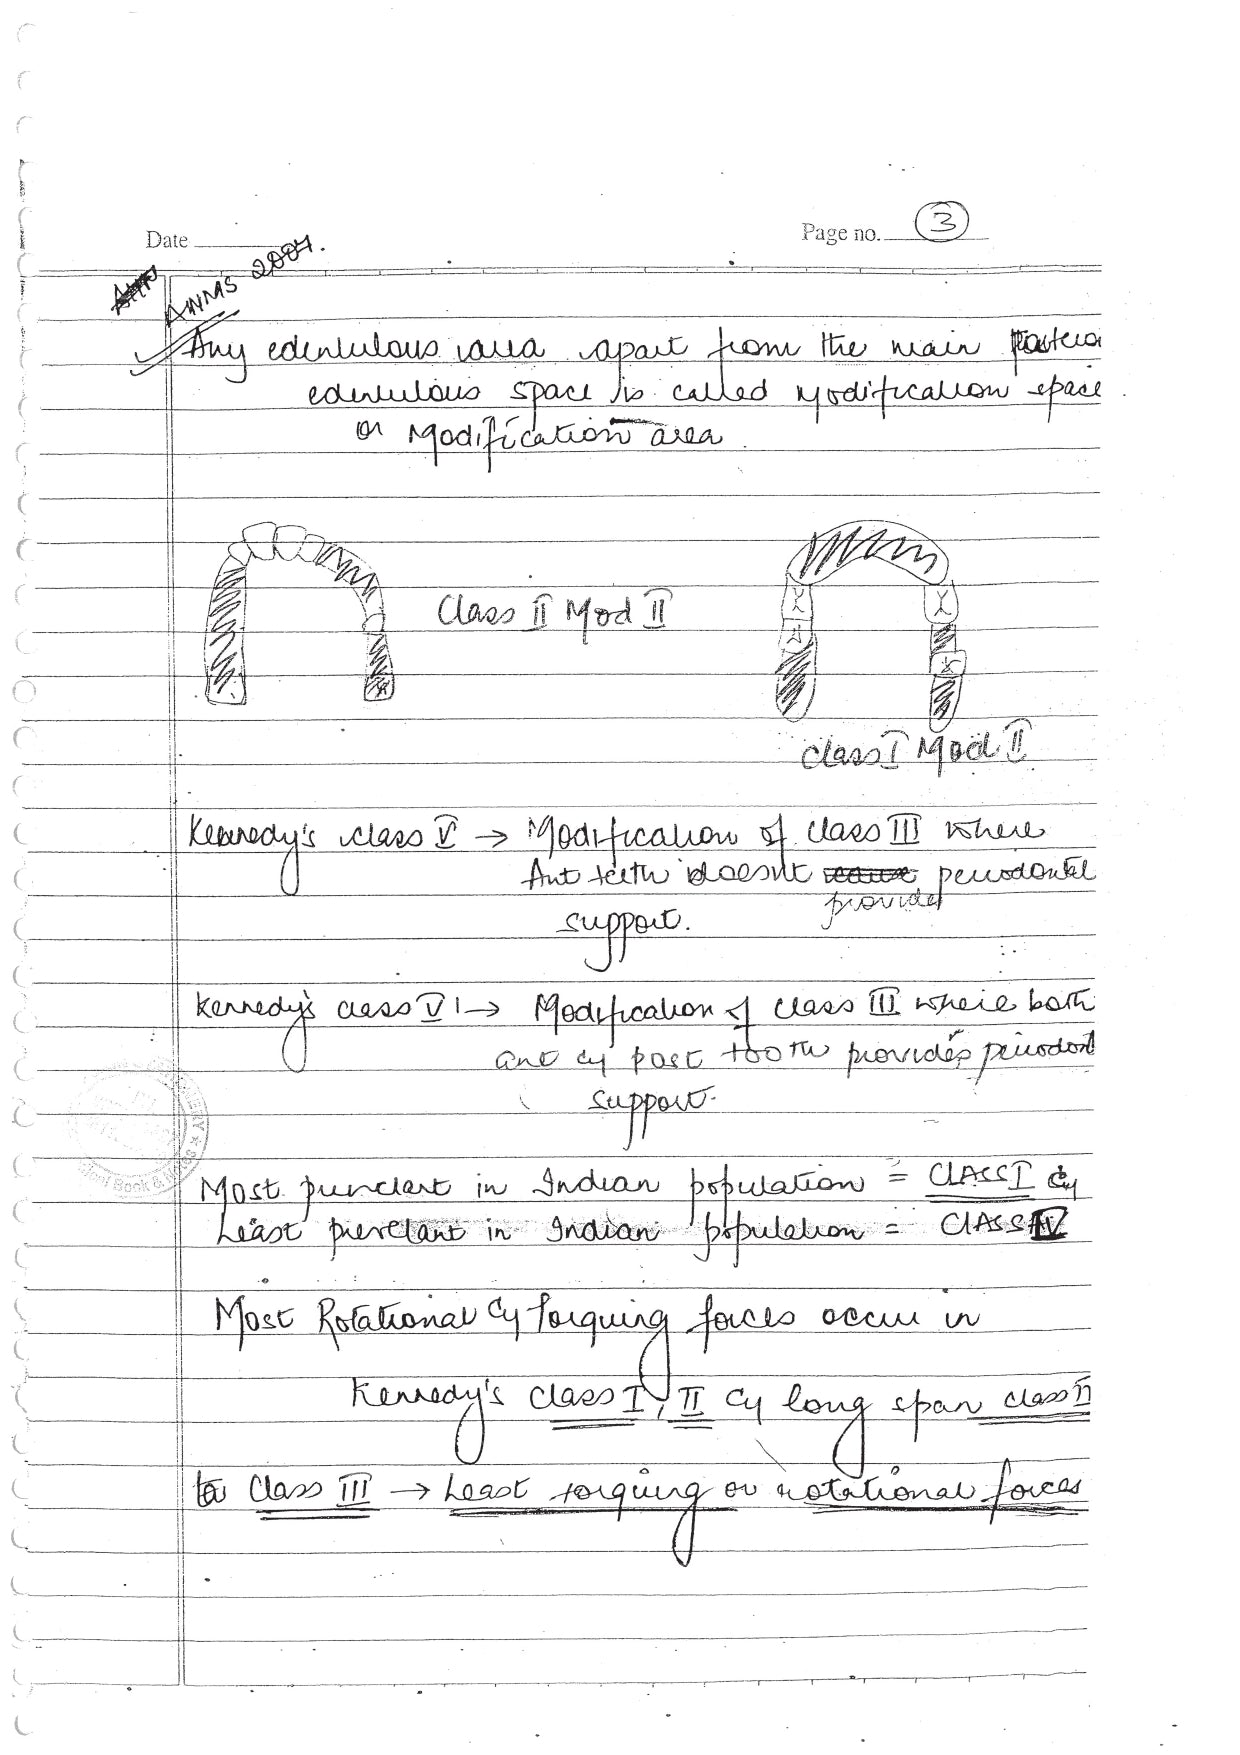 Date
Page no. 3
AIIMS 2007.
Any edentulous area apart from the main Posterior
edentulous space is called Modification space
or Modification area.
Class II Mod II
Class I Mod II
Kennedy's class V → Modification of class III where
Ant teeth doesnt periodontal
provides
support.
Kennedy's class VI → Modification of class III where both
ant & post tooth provides periodont
support.
Most prevelant in Indian population = CLASS I &
Least prevelant in Indian population = CLASS IV
Most Rotational & Torquing forces occur in
Kennedy's class I, II & long span class
Class III → Least torquing or rotational forces